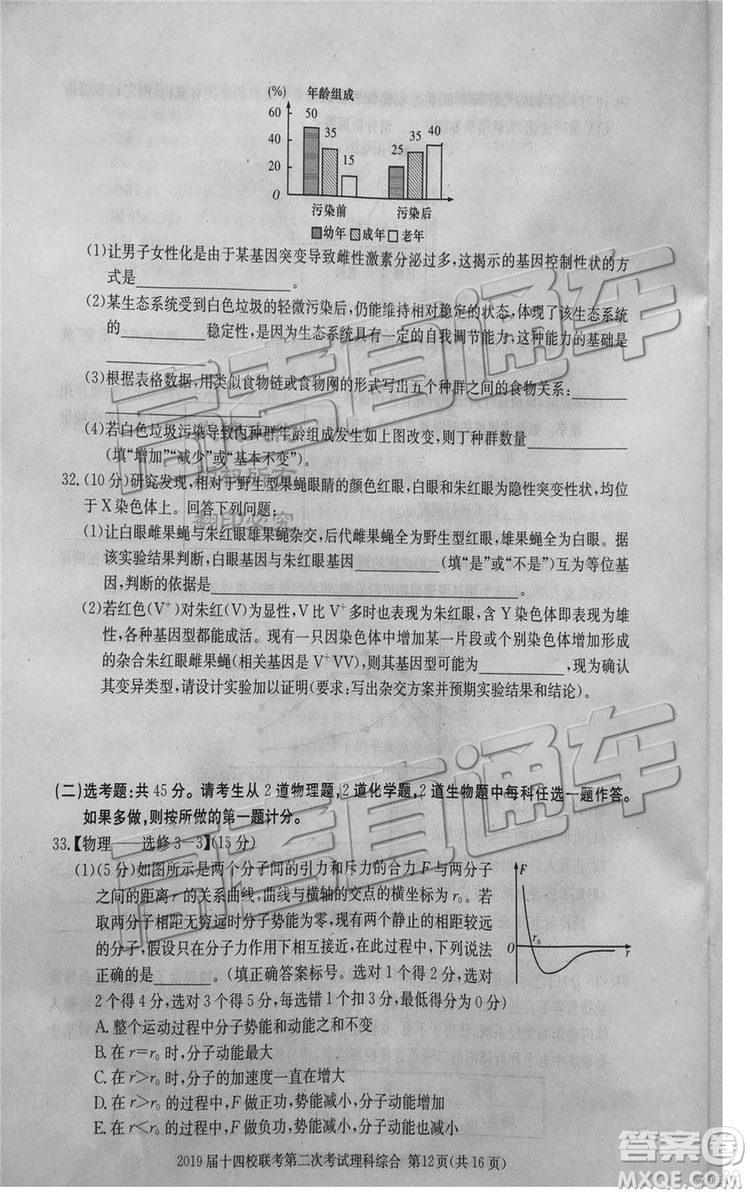 (%)
年龄组成
60
50
40
35
15
25
35
40
20
0
污染前
污染后
幼年 成年 老年
(1)让男子女性化是由于某基因突变导致雌性激素分泌过多,这揭示的基因控制性状的方
式是____________。
(2)某生态系统受到白色垃圾的轻微污染后,仍能维持相对稳定的状态,体现了该生态系统
的________稳定性,是因为生态系统具有一定的自我调节能力,这种能力的基础是
________。
(3)根据表格数据,用类似食物链或食物网的形式写出五个种群之间的食物关系:________
________。
(4)若白色垃圾污染导致丙种群年龄组成发生如上图改变,则丁种群数量________
(填“增加”“减少”或“基本不变”)。
32.(10分)研究发现,相对于野生型果蝇眼睛的颜色红眼,白眼和朱红眼为隐性突变性状,均位
于X染色体上。回答下列问题:
(1)让白眼雌果蝇与朱红眼雄果蝇杂交,后代雌果蝇全为野生型红眼,雄果蝇全为白眼。据
该实验结果判断,白眼基因与朱红眼基因________(填“是”或“不是”)互为等位基
因,判断的依据是____________。
(2)若红色(V⁺)对朱红(V)为显性,V比V⁺多时也表现为朱红眼,含Y染色体即表现为雄
性,各种基因型都能成活。现有一只因染色体中增加某一片段或个别染色体增加形成
的杂合朱红眼雌果蝇(相关基因是V⁺VV),则其基因型可能为________,现为确认
其变异类型,请设计实验加以证明(要求:写出杂交方案并预期实验结果和结论)。
(二)选考题:共45分。请考生从2道物理题,2道化学题,2道生物题中每科任选一题作答。
如果多做,则按所做的第一题计分。
33.【物理——选修3-3】(15分)
(1)(5分)如图所示是两个分子间的引力和斥力的合力F与两分子
之间的距离r的关系曲线,曲线与横轴的交点的横坐标为r₀。若
取两分子相距无穷远时分子势能为零,现有两个静止的相距较远
的分子,假设只在分子力作用下相互接近,在此过程中,下列说法
正确的是________。(填正确答案标号。选对1个得2分,选对
2个得4分,选对3个得5分,每选错1个扣3分,最低得分为0分)
F
0
r₀
r
A.整个运动过程中分子势能和动能之和不变
B.在r=r₀时,分子动能最大
C.在r>r₀时,分子的加速度一直在增大
D.在r>r₀的过程中,F做正功,势能减小,分子动能增加
E.在r<r₀的过程中,F做负功,势能减小,分子动能也减小
2019届十四校联考第二次考试理科综合 第12页(共16页)
高考直通车
版权所有
翻印必究
高考直通车
答案圈
MXQE.COM